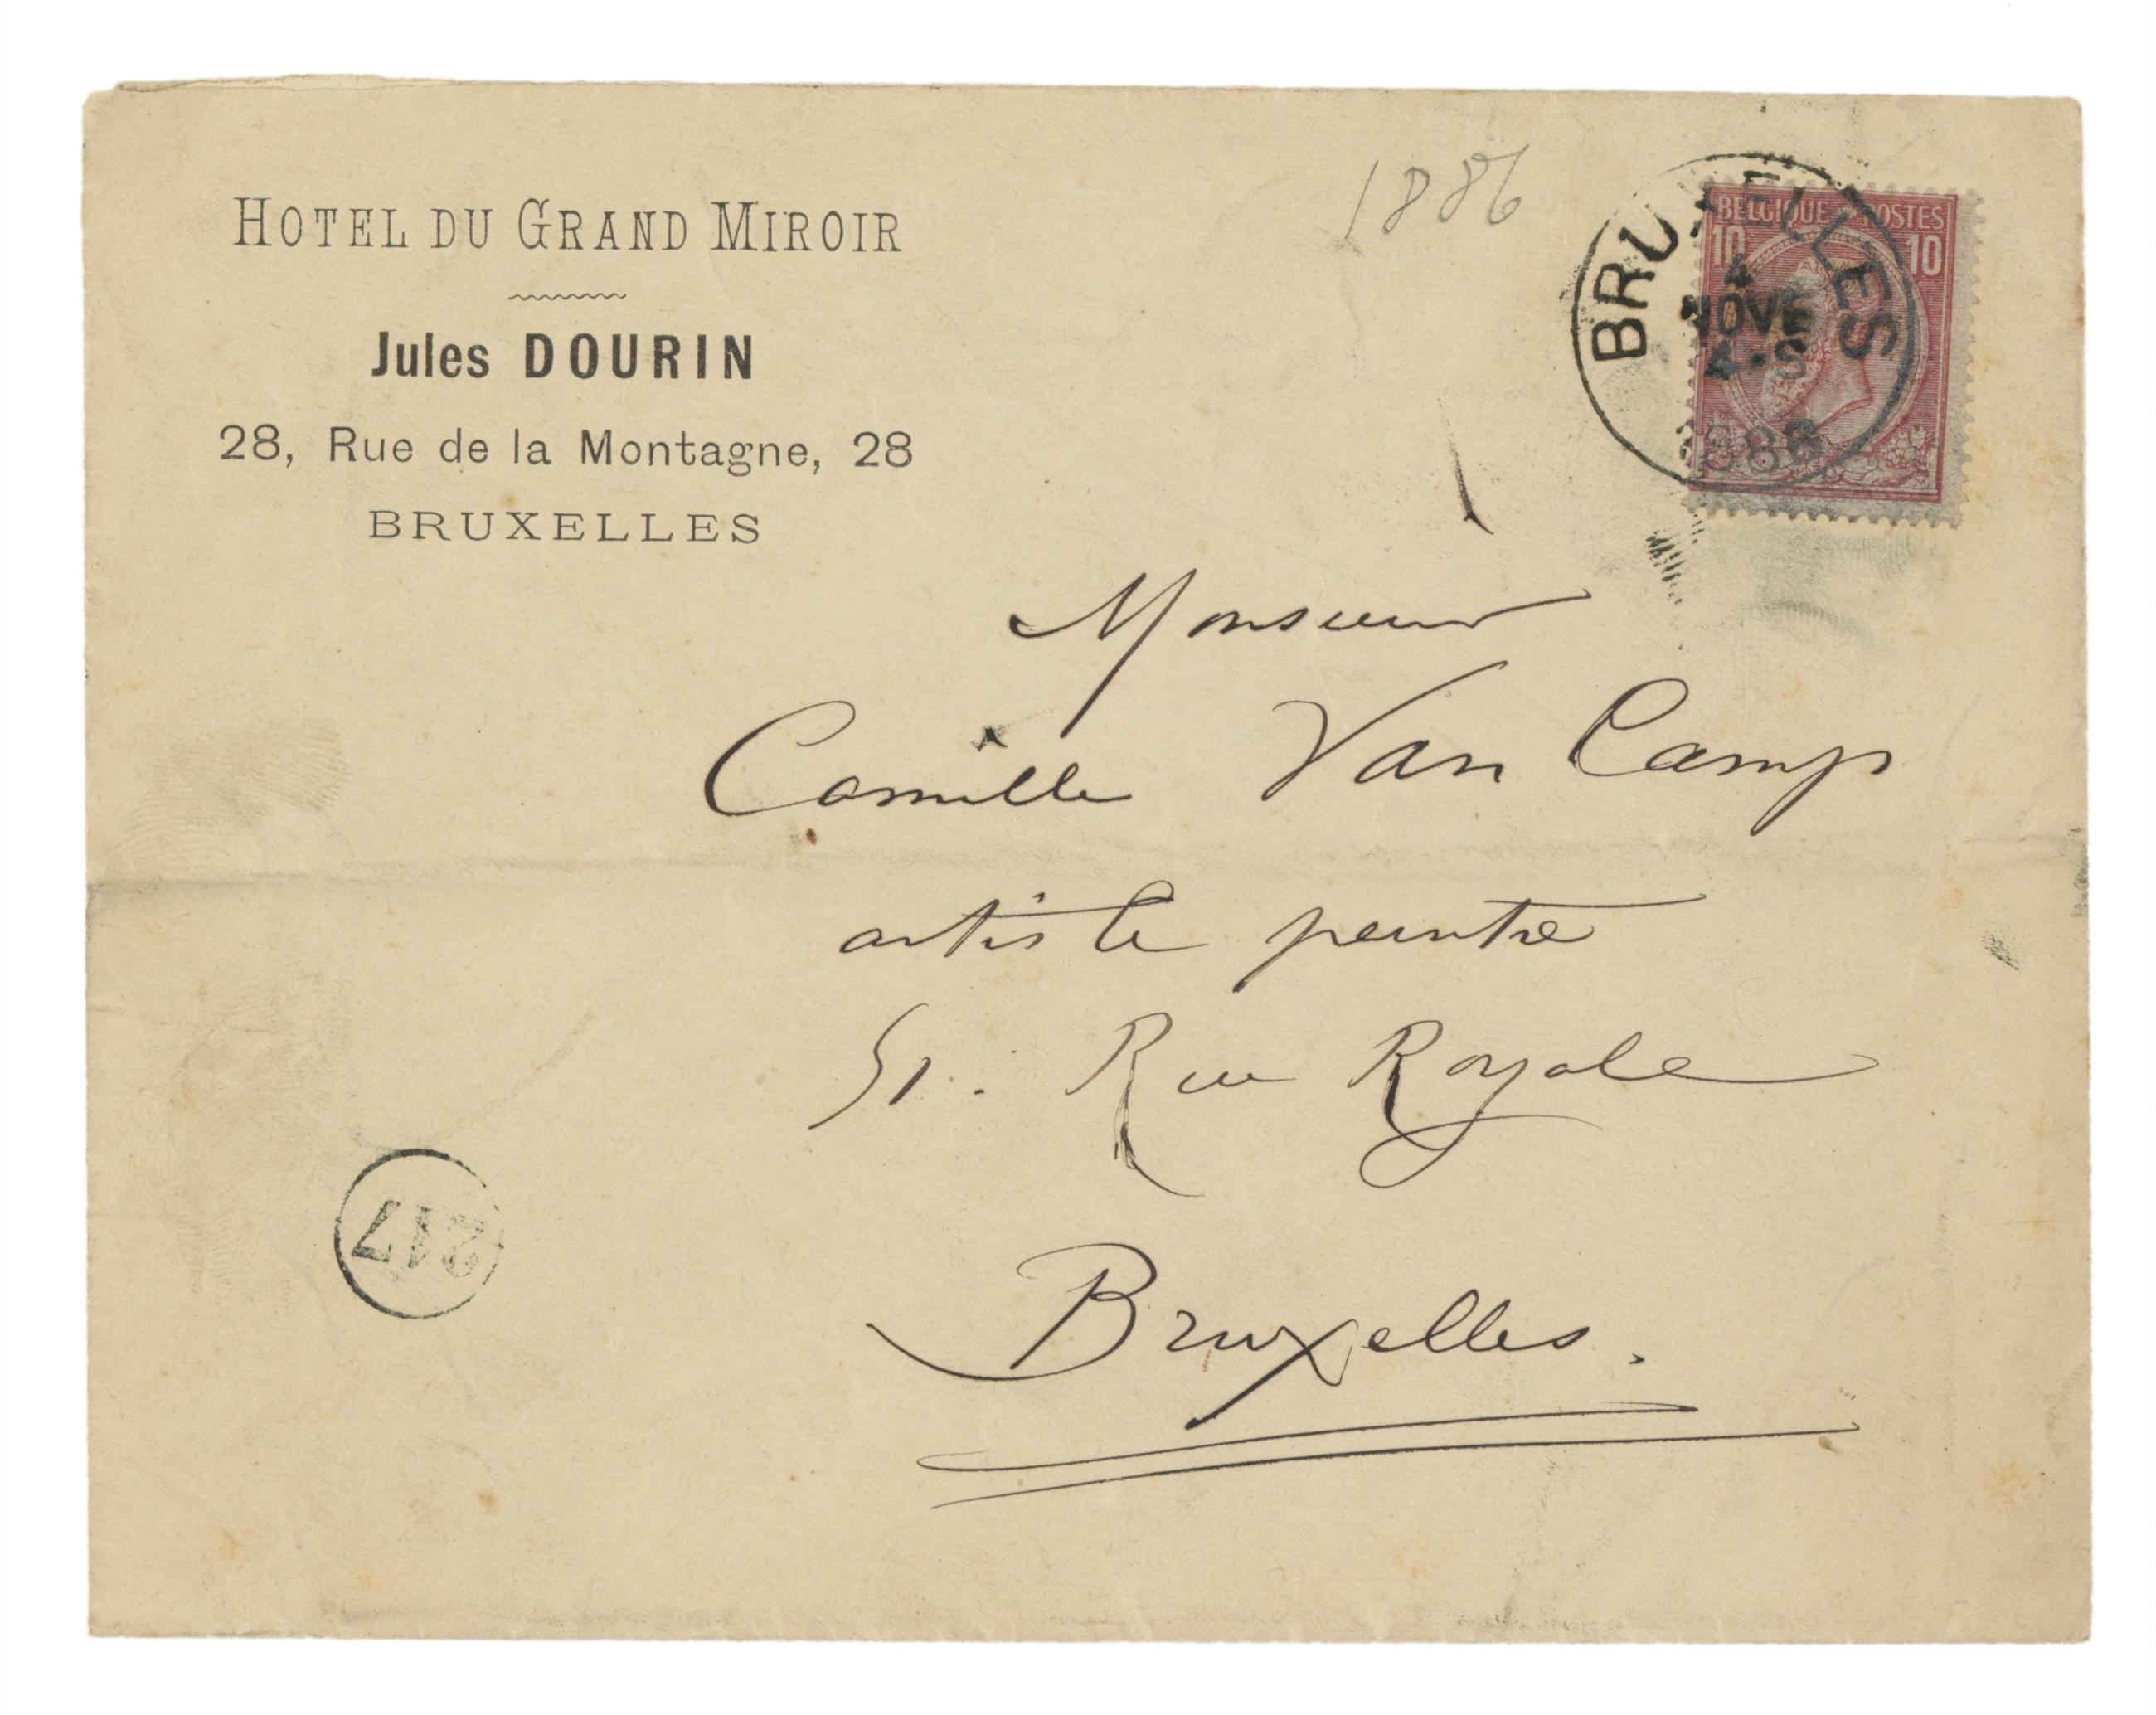 HOTEL DU GRAND MIROIR
Jules DOURIN
28, Rue de la Montagne, 28
BRUXELLES
1886
BRUXELLES
4
NOVE
4-S
BELGIQUE POSTES
10 10
Monsieur
Camille Van Camp
artiste peintre
51. Rue Royale
Bruxelles.
247